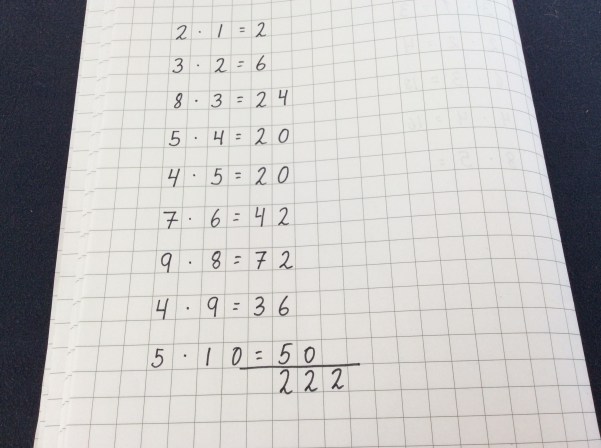 2 · 1 = 2
3 · 2 = 6
8 · 3 = 24
5 · 4 = 20
4 · 5 = 20
7 · 6 = 42
9 · 8 = 72
4 · 9 = 36
5 · 10 = 50
222